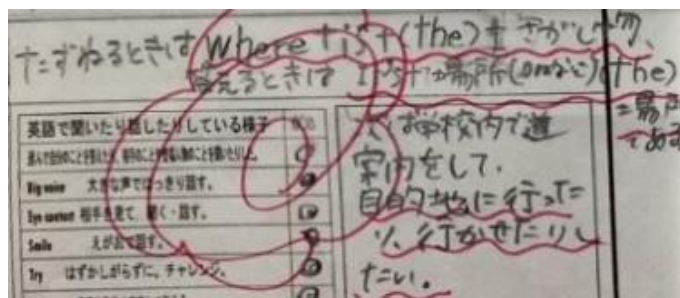 たずねるときは Where is+(the)+さがし物、
答えるときは It's+場所(onなど)(the)
＝場所
である
英語で聞いたり話したりしている様子
Big voice 大きな声ではっきり話す。
Eye contact 相手を見て、聞く・話す。
Smile えがおで話す。
Try はずかしがらずに、チャレンジ。
校内で道
案内をして、
目的地に行った
り、行かせたりし
たい。